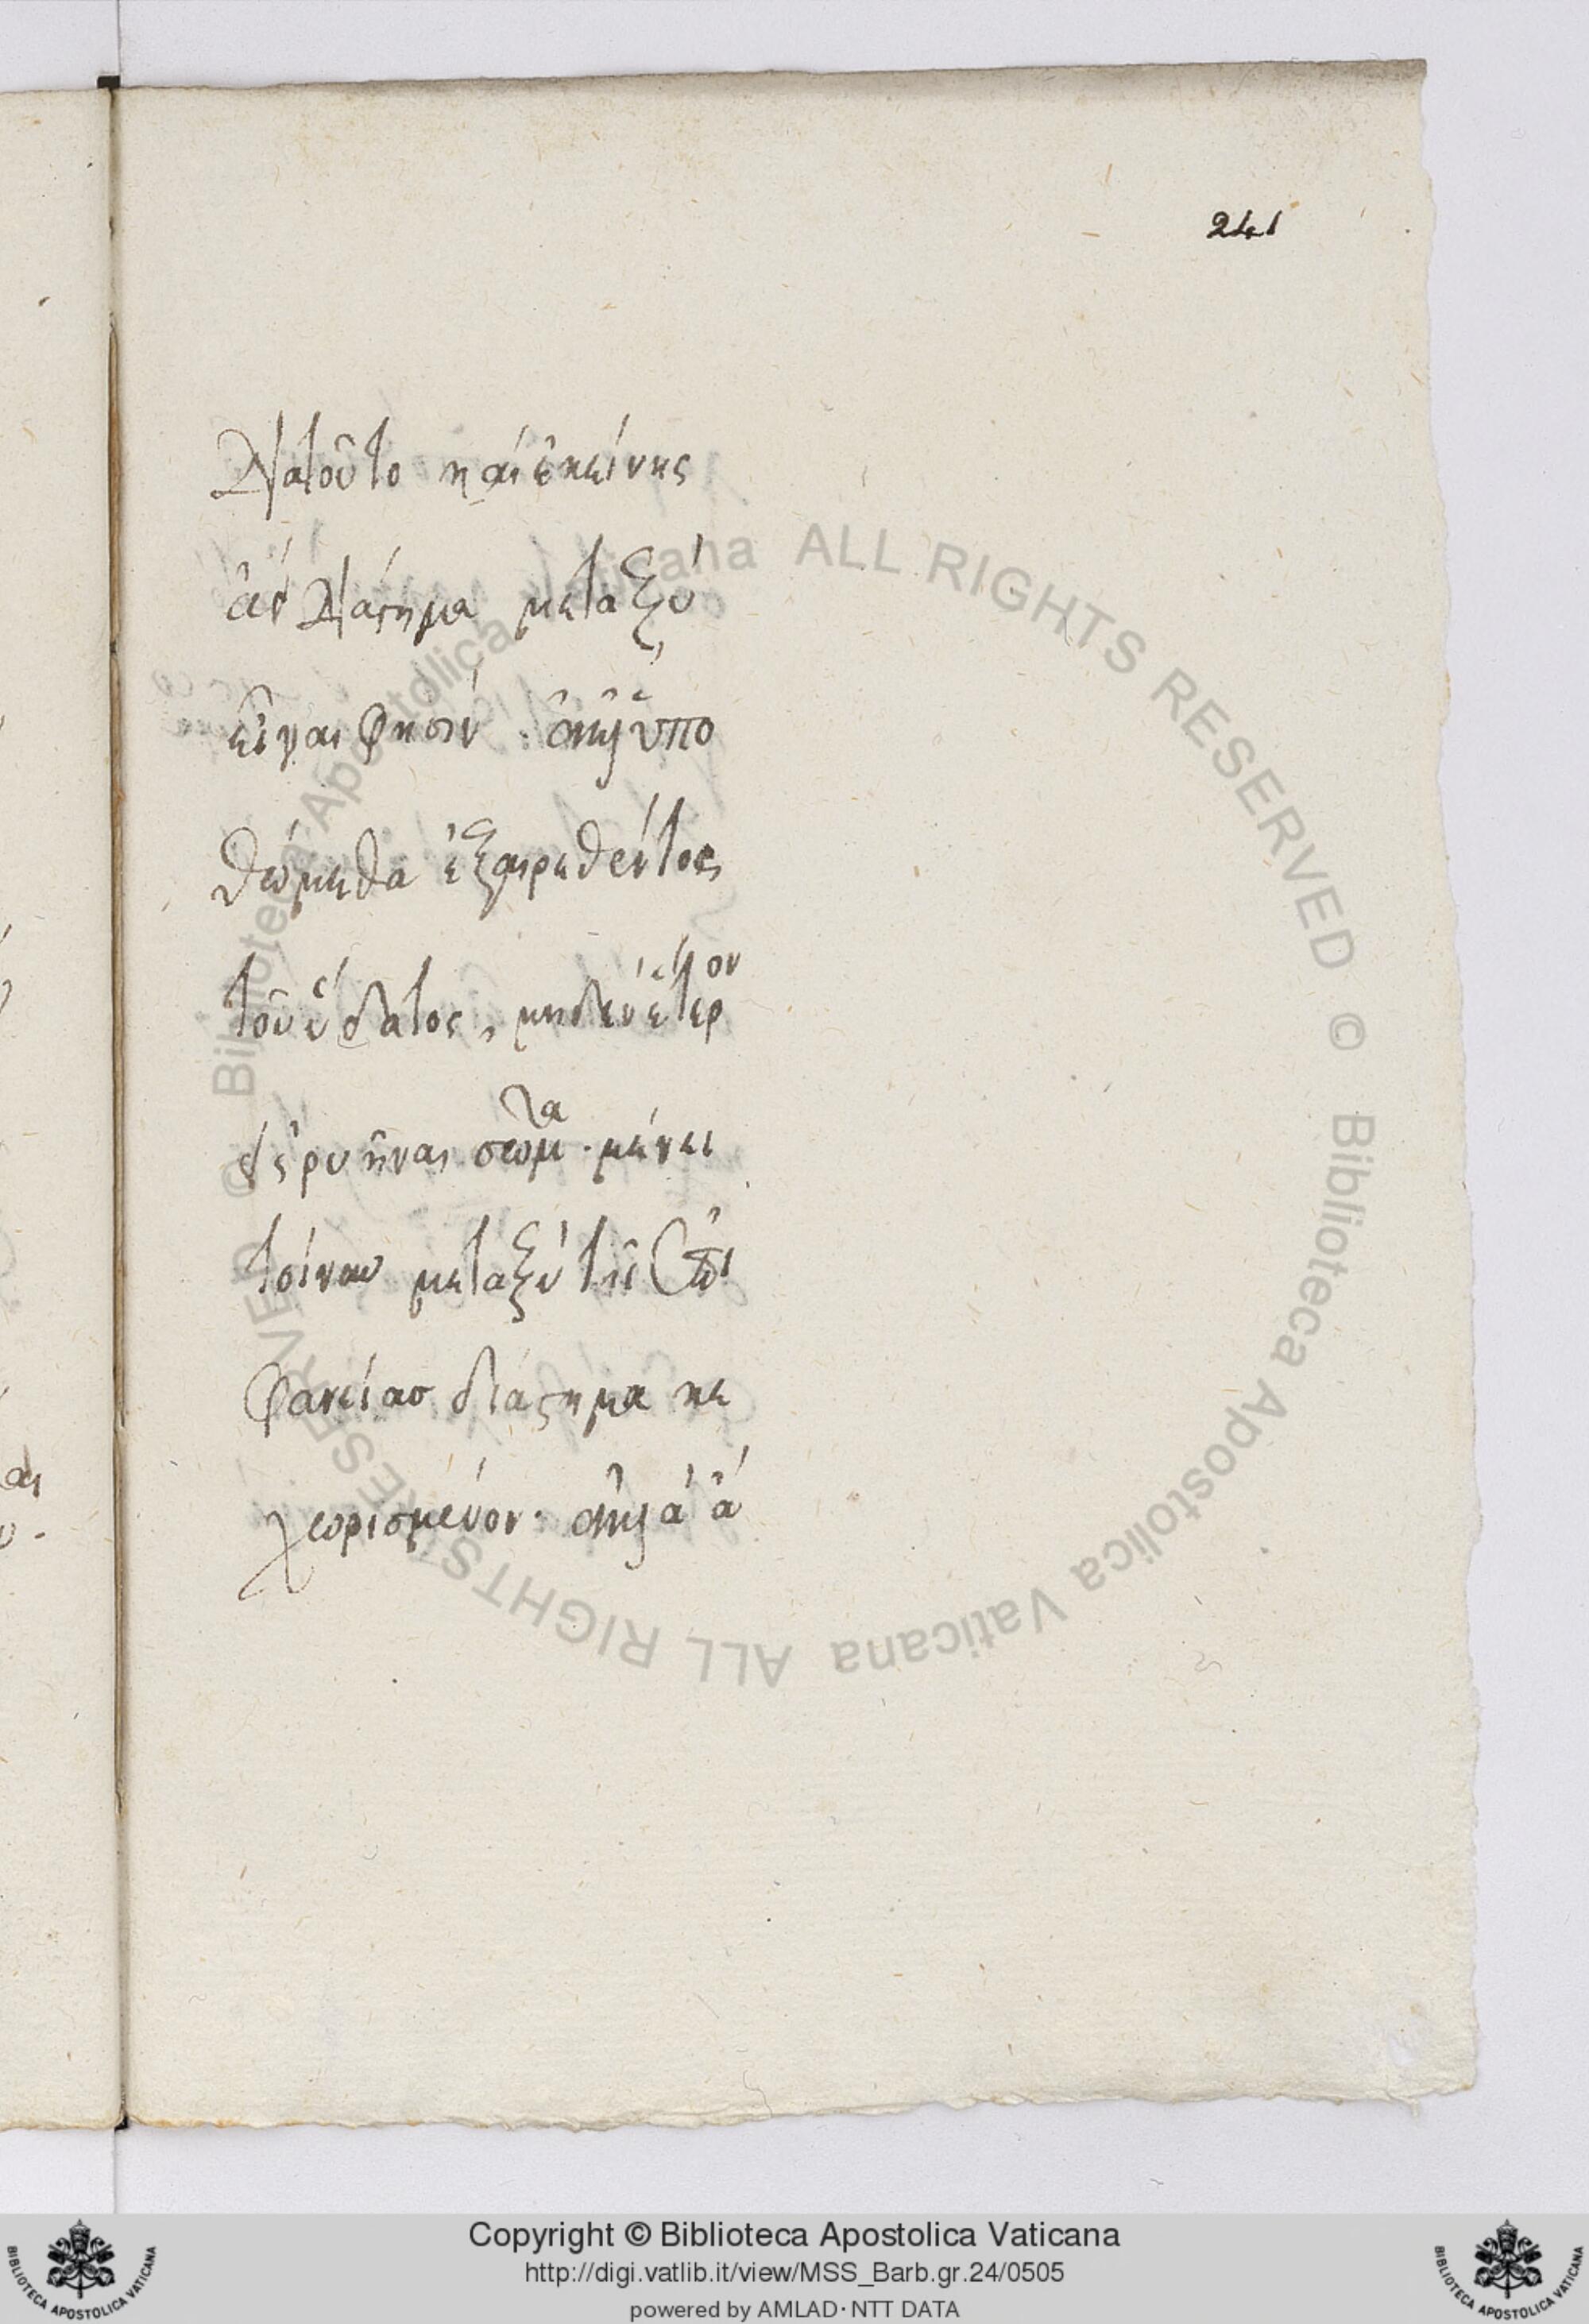 241
διατοῦτο καὶ ἐκείνης
ἂν διάστημα μεταξύ
εἶναι φησίν. ἀλλ' ὑπο
θώμεθα ἐξαιρεθέντος
τοῦ ὕδατος, μηδὲν ἕτερον
εἰσρυῆναι σῶμα. μένει
τοίνυν μεταξὺ τῆς ἐπι
φανείας διάστημα κε
χωρισμένον. ἀλλὰ ἀ
Copyright © Biblioteca Apostolica Vaticana
http://digi.vatlib.it/view/MSS_Barb.gr.24/0505
powered by AMLAD·NTT DATA
© Biblioteca Apostolica Vaticana ALL RIGHTS RESERVED © Biblioteca Apostolica Vaticana ALL RIGHTS RESERVED
BIBLIOTECA APOSTOLICA VATICANA
BIBLIOTECA APOSTOLICA VATICANA